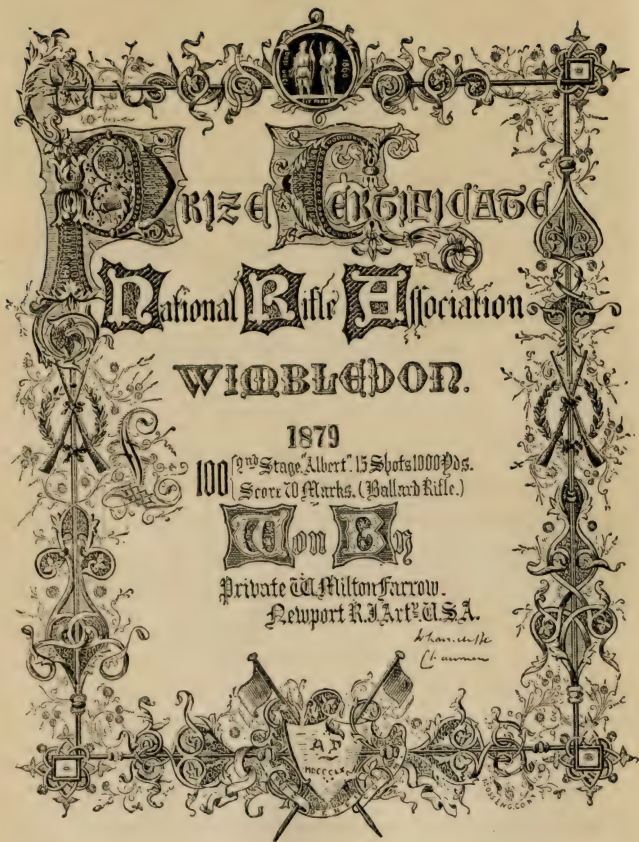 SIT PERPET
1860
Prize Certificate
National Rifle Association
WIMBLEDON.
1879
£100 { 2nd Stage "Albert". 15 Shots 1000 Yds.
Score 70 Marks. (Ballard Rifle.)
Won By
Private W. Milton Farrow.
Newport R.I. Arty. U.S.A.
Chairman
A.D.
MOSS ENG. CO. N.Y.